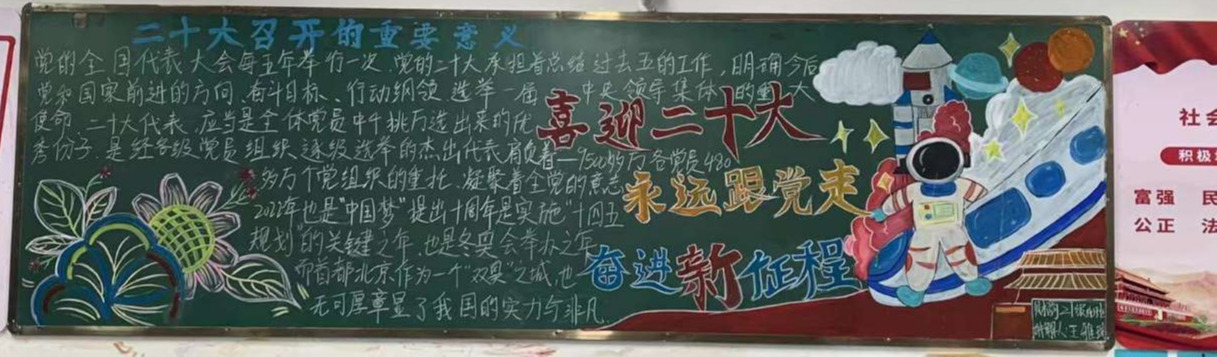 二十大召开的重要意义
党的全国代表大会每五年举行一次，党的二十大承担着总结过去五的工作，明确今后
党和国家前进的方向、奋斗目标、行动纲领选举一届 中央领导集体的重大
使命，二十大代表，应当是全体党员中千挑万选出来的优
秀份子，是经各级党员组织逐级选举的杰出代表肩负着一9500多万名党员480
多万个党组织的重托、凝聚着全党的意志
2022年也是"中国梦"提出十周年是实施"十四五
规划"的关键之年，也是冬奥会举办之年
而首都北京作为一个"双奥"之城，也
无可厚非彰显了我国的实力与非凡
喜迎二十大
永远跟党走
奋进新征程
社会
积极
富强 民
公正 法